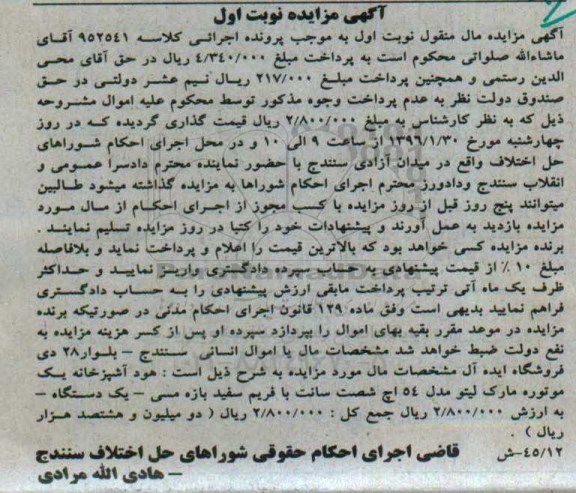 آگهی مزایده نوبت اول
آگهی مزایده مال منقول نوبت اول به موجب پرونده اجرائی کلاسه ۹۵۲۵۴۱ آقای
ماشاءالله صلواتی محکوم است به پرداخت مبلغ ۴/۳۴۰/۰۰۰ ریال در حق آقای محی
الدین رستمی و همچنین پرداخت مبلغ ۲۱۷/۰۰۰ ریال نیم عشر دولتی در حق
صندوق دولت نظر به عدم پرداخت وجوه مذکور توسط محکوم علیه اموال مشروحه
ذیل که به نظر کارشناس به مبلغ ۲/۸۰۰/۰۰۰ ریال قیمت گذاری گردیده که در روز
چهارشنبه مورخ ۱۳۹۶/۱/۳۰ از ساعت ۹ الی ۱۰ و در محل اجرای احکام شوراهای
حل اختلاف واقع در میدان آزادی سنندج با حضور نماینده محترم دادسرا عمومی و
انقلاب سنندج ودادورز محترم اجرای احکام شوراها به مزایده گذاشته میشود طالبین
میتوانند پنج روز قبل از روز مزایده با کسب مجوز از اجرای احکام از مال مورد
مزایده بازدید به عمل آورند و پیشنهادات خود را کتبا در روز مزایده تسلیم نمایند .
برنده مزایده کسی خواهد بود که بالاترین قیمت را اعلام و پرداخت نماید و بلافاصله
مبلغ ۱۰ ٪ از قیمت پیشنهادی به حساب سپرده دادگستری واریز نمایید و حداکثر
ظرف یک ماه آتی ترتیب پرداخت مابقی ارزش پیشنهادی را به حساب دادگستری
فراهم نمایید بدیهی است وفق ماده ۱۲۹ قانون اجرای احکام مدنی در صورتیکه برنده
مزایده در موعد مقرر بقیه بهای اموال را نپردازد سپرده او پس از کسر هزینه مزایده به
نفع دولت ضبط خواهد شد مشخصات مال یا اموال انسانی سنندج – بلوار۲۸ دی
فروشگاه ایده آل مشخصات مال مورد مزایده به شرح ذیل است : هود آشپزخانه یک
موتوره مارک لیتو مدل ۵۴ اچ شصت سانت با فریم سفید بازه مسی – یک دستگاه –
به ارزش ۲/۸۰۰/۰۰۰ ریال جمع کل : ۲/۸۰۰/۰۰۰ ریال ( دو میلیون و هشتصد هزار
ریال ) .
۴۵/۱۲-ش قاضی اجرای احکام حقوقی شوراهای حل اختلاف سنندج
– هادی الله مرادی